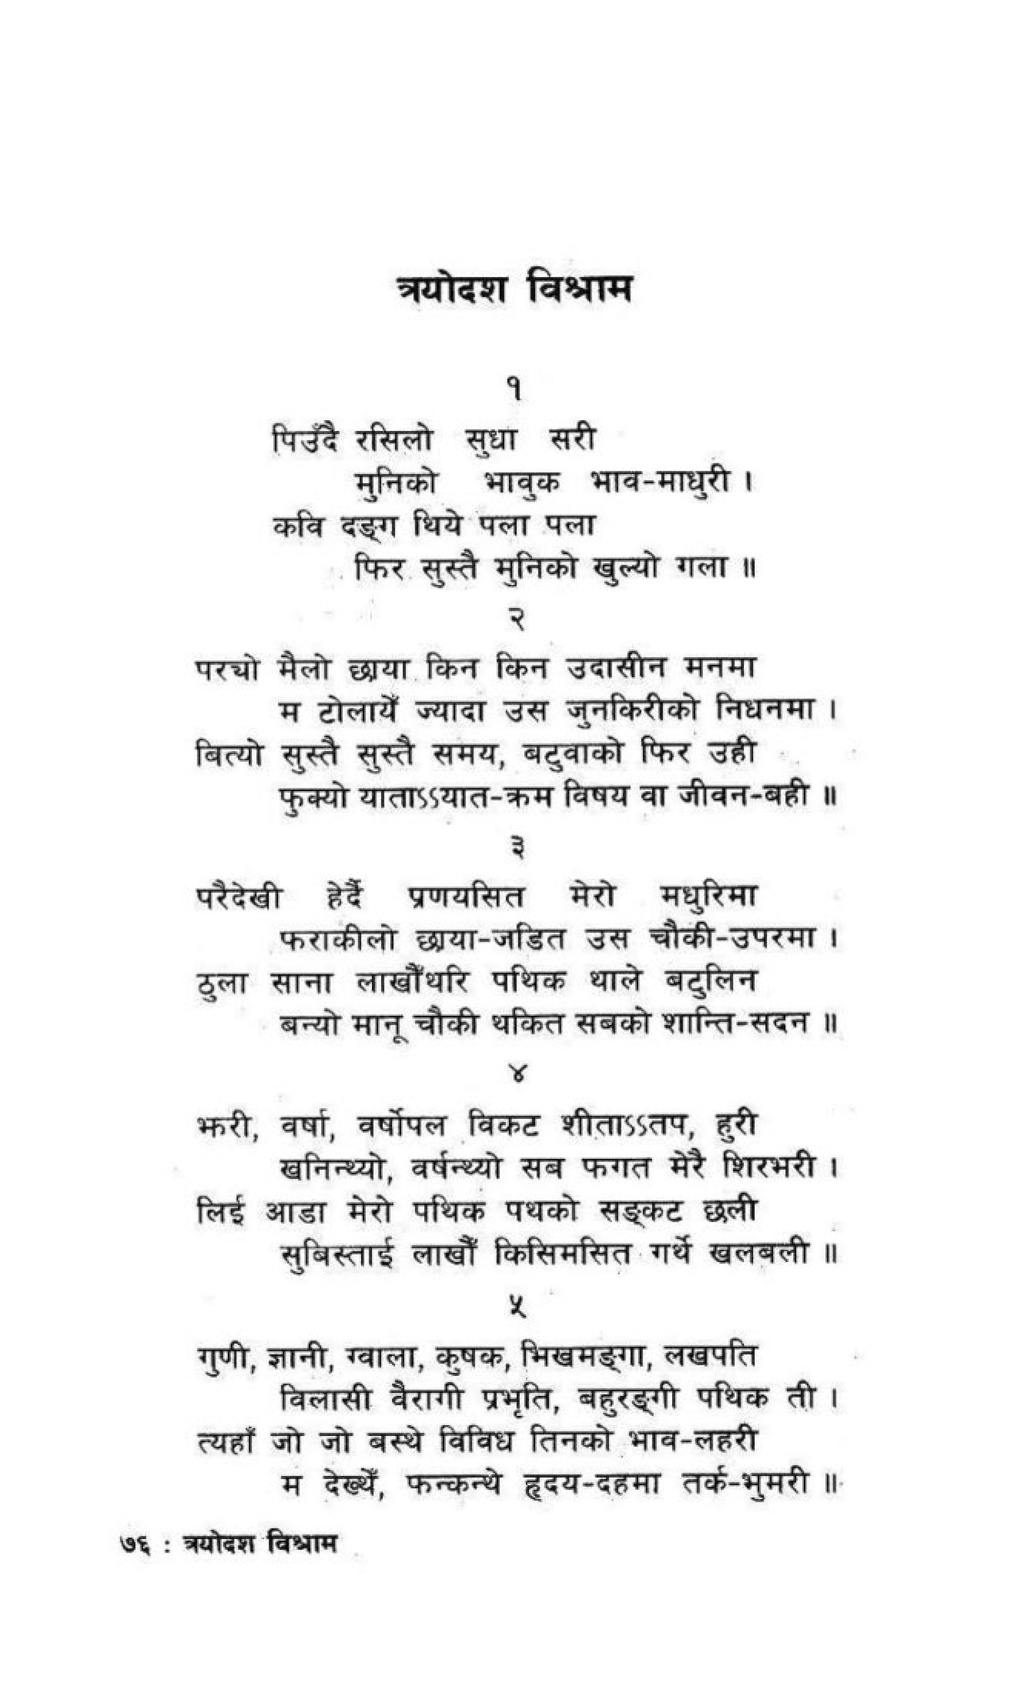 त्रयोदश विश्राम
१
पिउँदै रसिलो सुधा सरी
मुनिको भावुक भाव-माधुरी ।
कवि दङ्ग थिये पला पला
फिर सुस्तै मुनिको खुल्यो गला ॥
२
परयो मैलो छाया किन किन उदासीन मनमा
म टोलायेँ ज्यादा उस जुनकिरीको निधनमा ।
बित्यो सुस्तै सुस्तै समय, बटुवाको फिर उही
फुक्यो याताऽऽयात-क्रम विषय वा जीवन-बही ॥
३
परैदेखी हेर्दै प्रणयसित मेरो मधुरिमा
फराकीलो छाया-जडित उस चौकी-उपरमा ।
ठुला साना लाखौँथरि पथिक थाले बटुलिन
बन्यो मानू चौकी थकित सबको शान्ति-सदन ॥
४
झरी, वर्षा, वर्षोपल विकट शीताऽऽतप, हुरी
खनिन्थ्यो, वर्षन्थ्यो सब फगत मेरै शिरभरी ।
लिई आडा मेरो पथिक पथको सङ्कट छली
सुबिस्ताई लाखौँ किसिमसित गर्थे खलबली ॥
५
गुणी, ज्ञानी, ग्वाला, कुषक, भिखमङ्गा, लखपति
विलासी वैरागी प्रभृति, बहुरङ्गी पथिक ती ।
त्यहाँ जो जो बस्थे विविध तिनको भाव-लहरी
म देख्थेँ, फन्कन्थे हृदय-दहमा तर्क-भुमरी ॥
७६ : त्रयोदश विश्राम